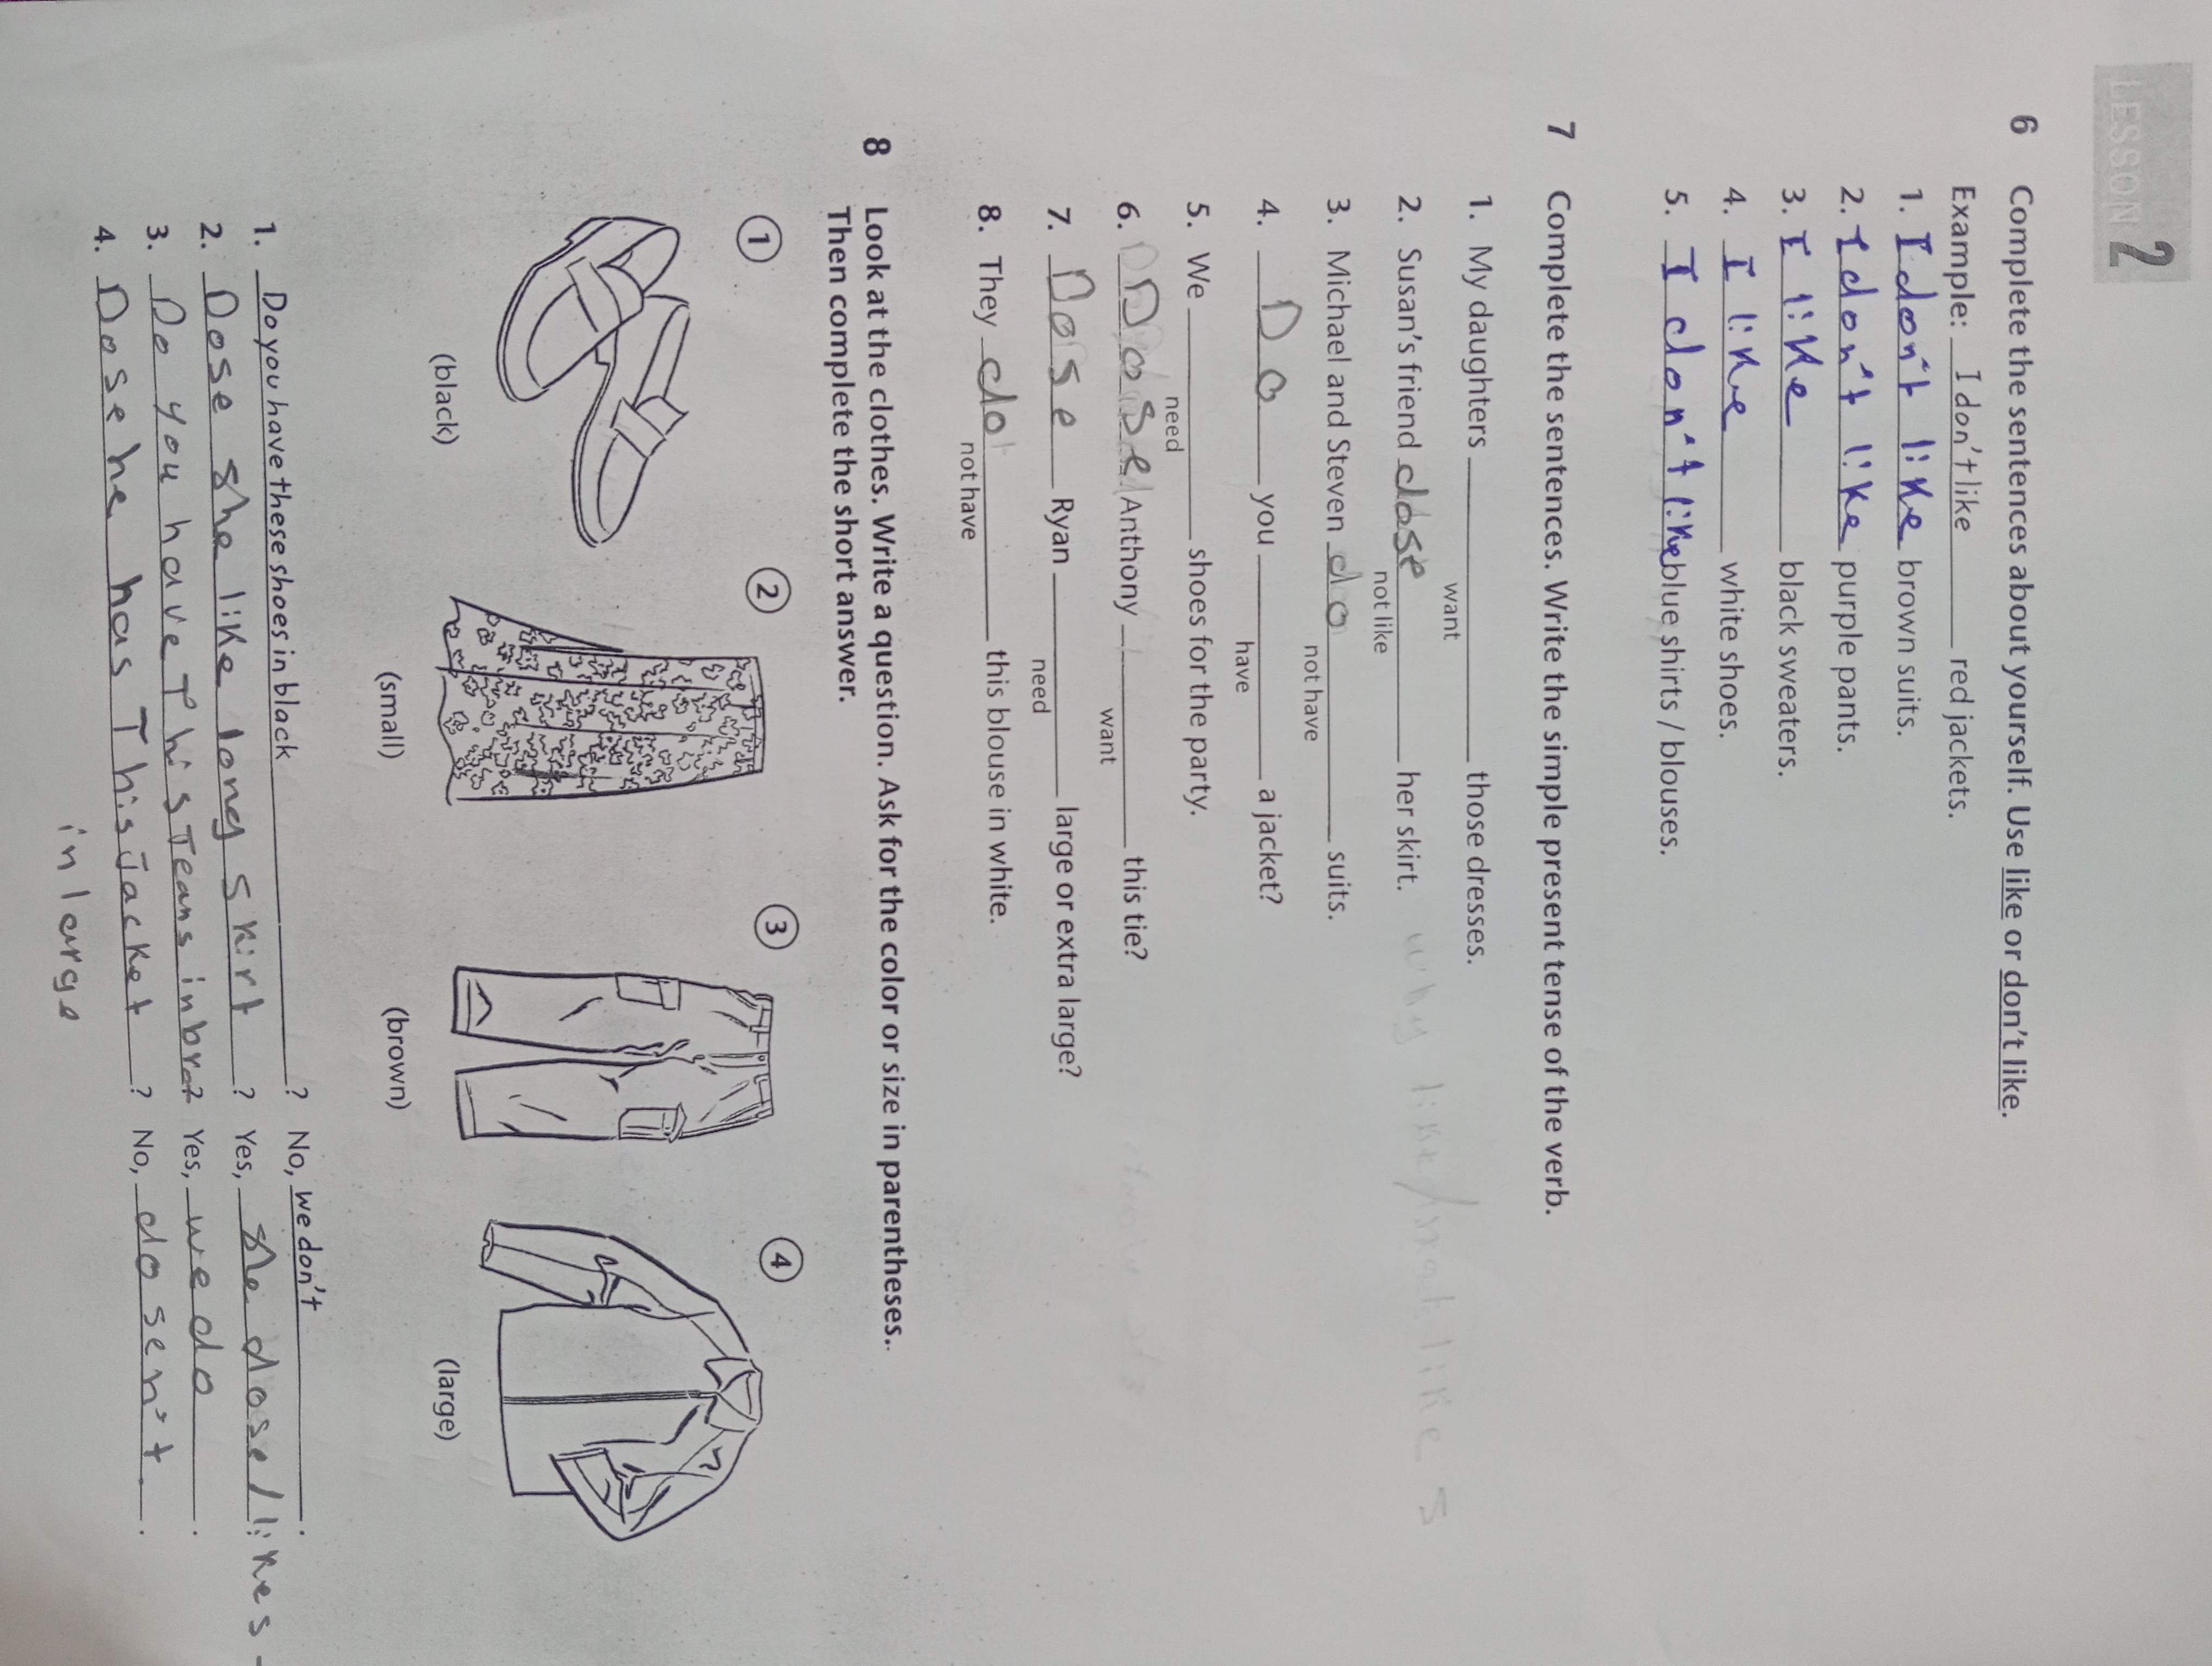 LESSON 2
6 Complete the sentences about yourself. Use like or don't like.
Example: I don't like red jackets.
1. I don't like brown suits.
2. I don't like purple pants.
3. I like black sweaters.
4. I like white shoes.
5. I don't like blue shirts / blouses.
7 Complete the sentences. Write the simple present tense of the verb.
1. My daughters those dresses.
want
2. Susan's friend dose her skirt. why like
not like
3. Michael and Steven do suits.
not have
4. Do you a jacket?
have
5. We shoes for the party.
need
6. Dose Anthony this tie?
want
7. Dose Ryan large or extra large?
need
8. They do this blouse in white.
not have
8 Look at the clothes. Write a question. Ask for the color or size in parentheses..
Then complete the short answer.
1 2 3 4
(black) (large)
(small) (brown)
1. Do you have these shoes in black ? No, we don't .
2. Dose she like long skirt ? Yes, she dose/likes
3. Do you have This Jeans in bro ? Yes, we do .
4. Dose he has This Jacket ? No, dosen't .
in large